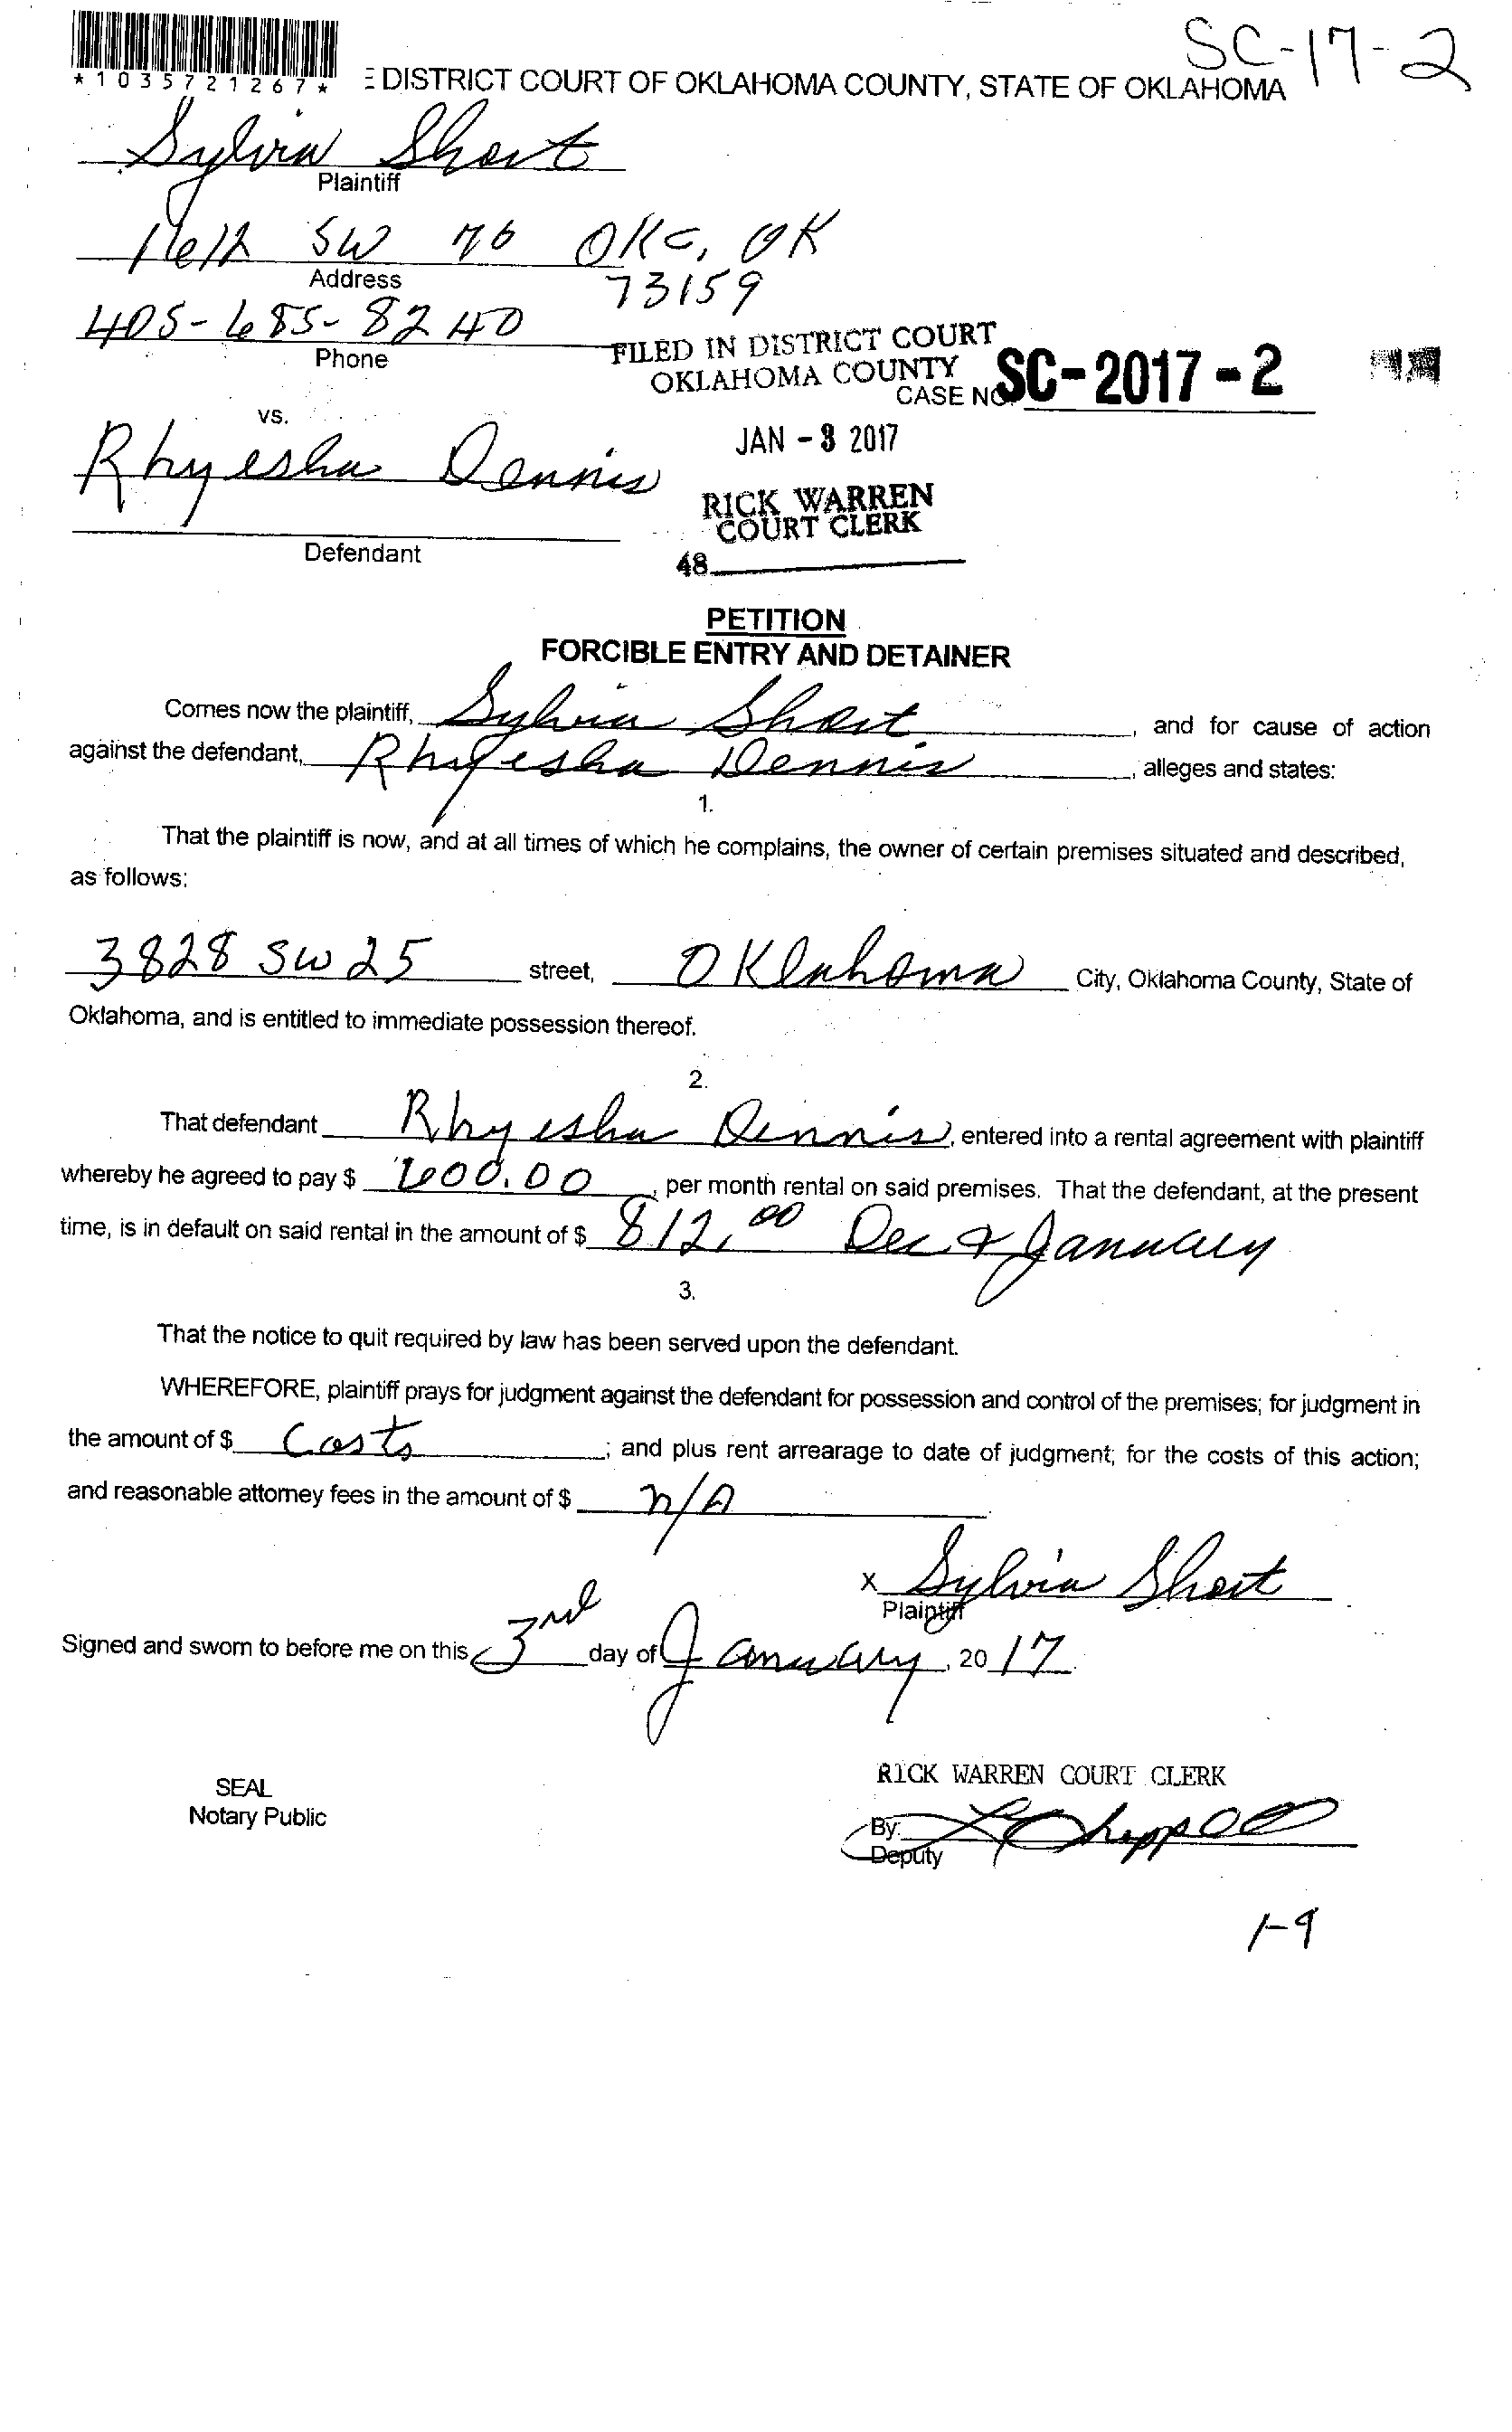 SC-17-2
*1035721267*
E DISTRICT COURT OF OKLAHOMA COUNTY, STATE OF OKLAHOMA
Sylvia Short
Plaintiff
SW 76 OKC, OK
Address
73159
405-685-8240
Phone
FILED IN DISTRICT COURT
OKLAHOMA COUNTY
CASE NO. SC-2017-2
vs.
JAN -3 2017
Rhyesha Dennis
RICK WARREN
COURT CLERK
Defendant
48
PETITION
FORCIBLE ENTRY AND DETAINER
Comes now the plaintiff, Sylvia Short, and for cause of action
against the defendant, Rhyesha Dennis, alleges and states:
1.
That the plaintiff is now, and at all times of which he complains, the owner of certain premises situated and described,
as follows:
3828 SW 25 street, Oklahoma City, Oklahoma County, State of
Oklahoma, and is entitled to immediate possession thereof.
2.
That defendant Rhyesha Dennis, entered into a rental agreement with plaintiff
whereby he agreed to pay $ 600.00, per month rental on said premises. That the defendant, at the present
time, is in default on said rental in the amount of $ 812,00 Dec & January
3.
That the notice to quit required by law has been served upon the defendant.
WHEREFORE, plaintiff prays for judgment against the defendant for possession and control of the premises; for judgment in
the amount of $ Costs; and plus rent arrearage to date of judgment; for the costs of this action;
and reasonable attorney fees in the amount of $ n/A
x Sylvia Short
Plaintiff
Signed and sworn to before me on this 3rd day of January, 2017.
SEAL
Notary Public
RICK WARREN COURT CLERK
By:
Deputy
1-9